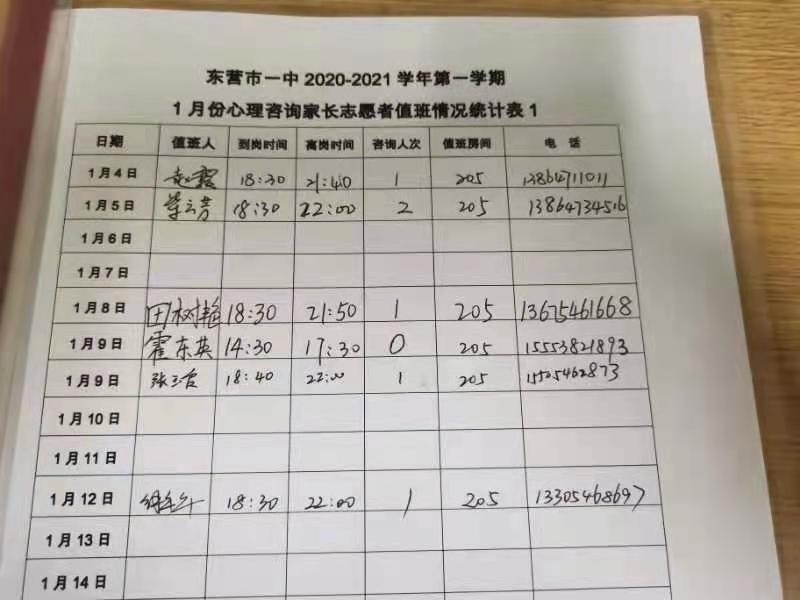 东营市一中 2020-2021 学年第一学期
1 月份心理咨询家长志愿者值班情况统计表 1
日期 值班人 到岗时间 离岗时间 咨询人次 值班房间 电 话
1 月 4 日 18:30 21:40 1 205 13864711011
1 月 5 日 18:30 22:00 2 205 13864734516
1 月 6 日
1 月 7 日
1 月 8 日 田树艳 18:30 21:50 1 205 13675461668
1 月 9 日 霍东英 14:30 17:30 0 205 15553821893
1 月 9 日 18:40 22:00 1 205
1 月 10 日
1 月 11 日
1 月 12 日 18:30 22:00 1 205 13305468697
1 月 13 日
1 月 14 日